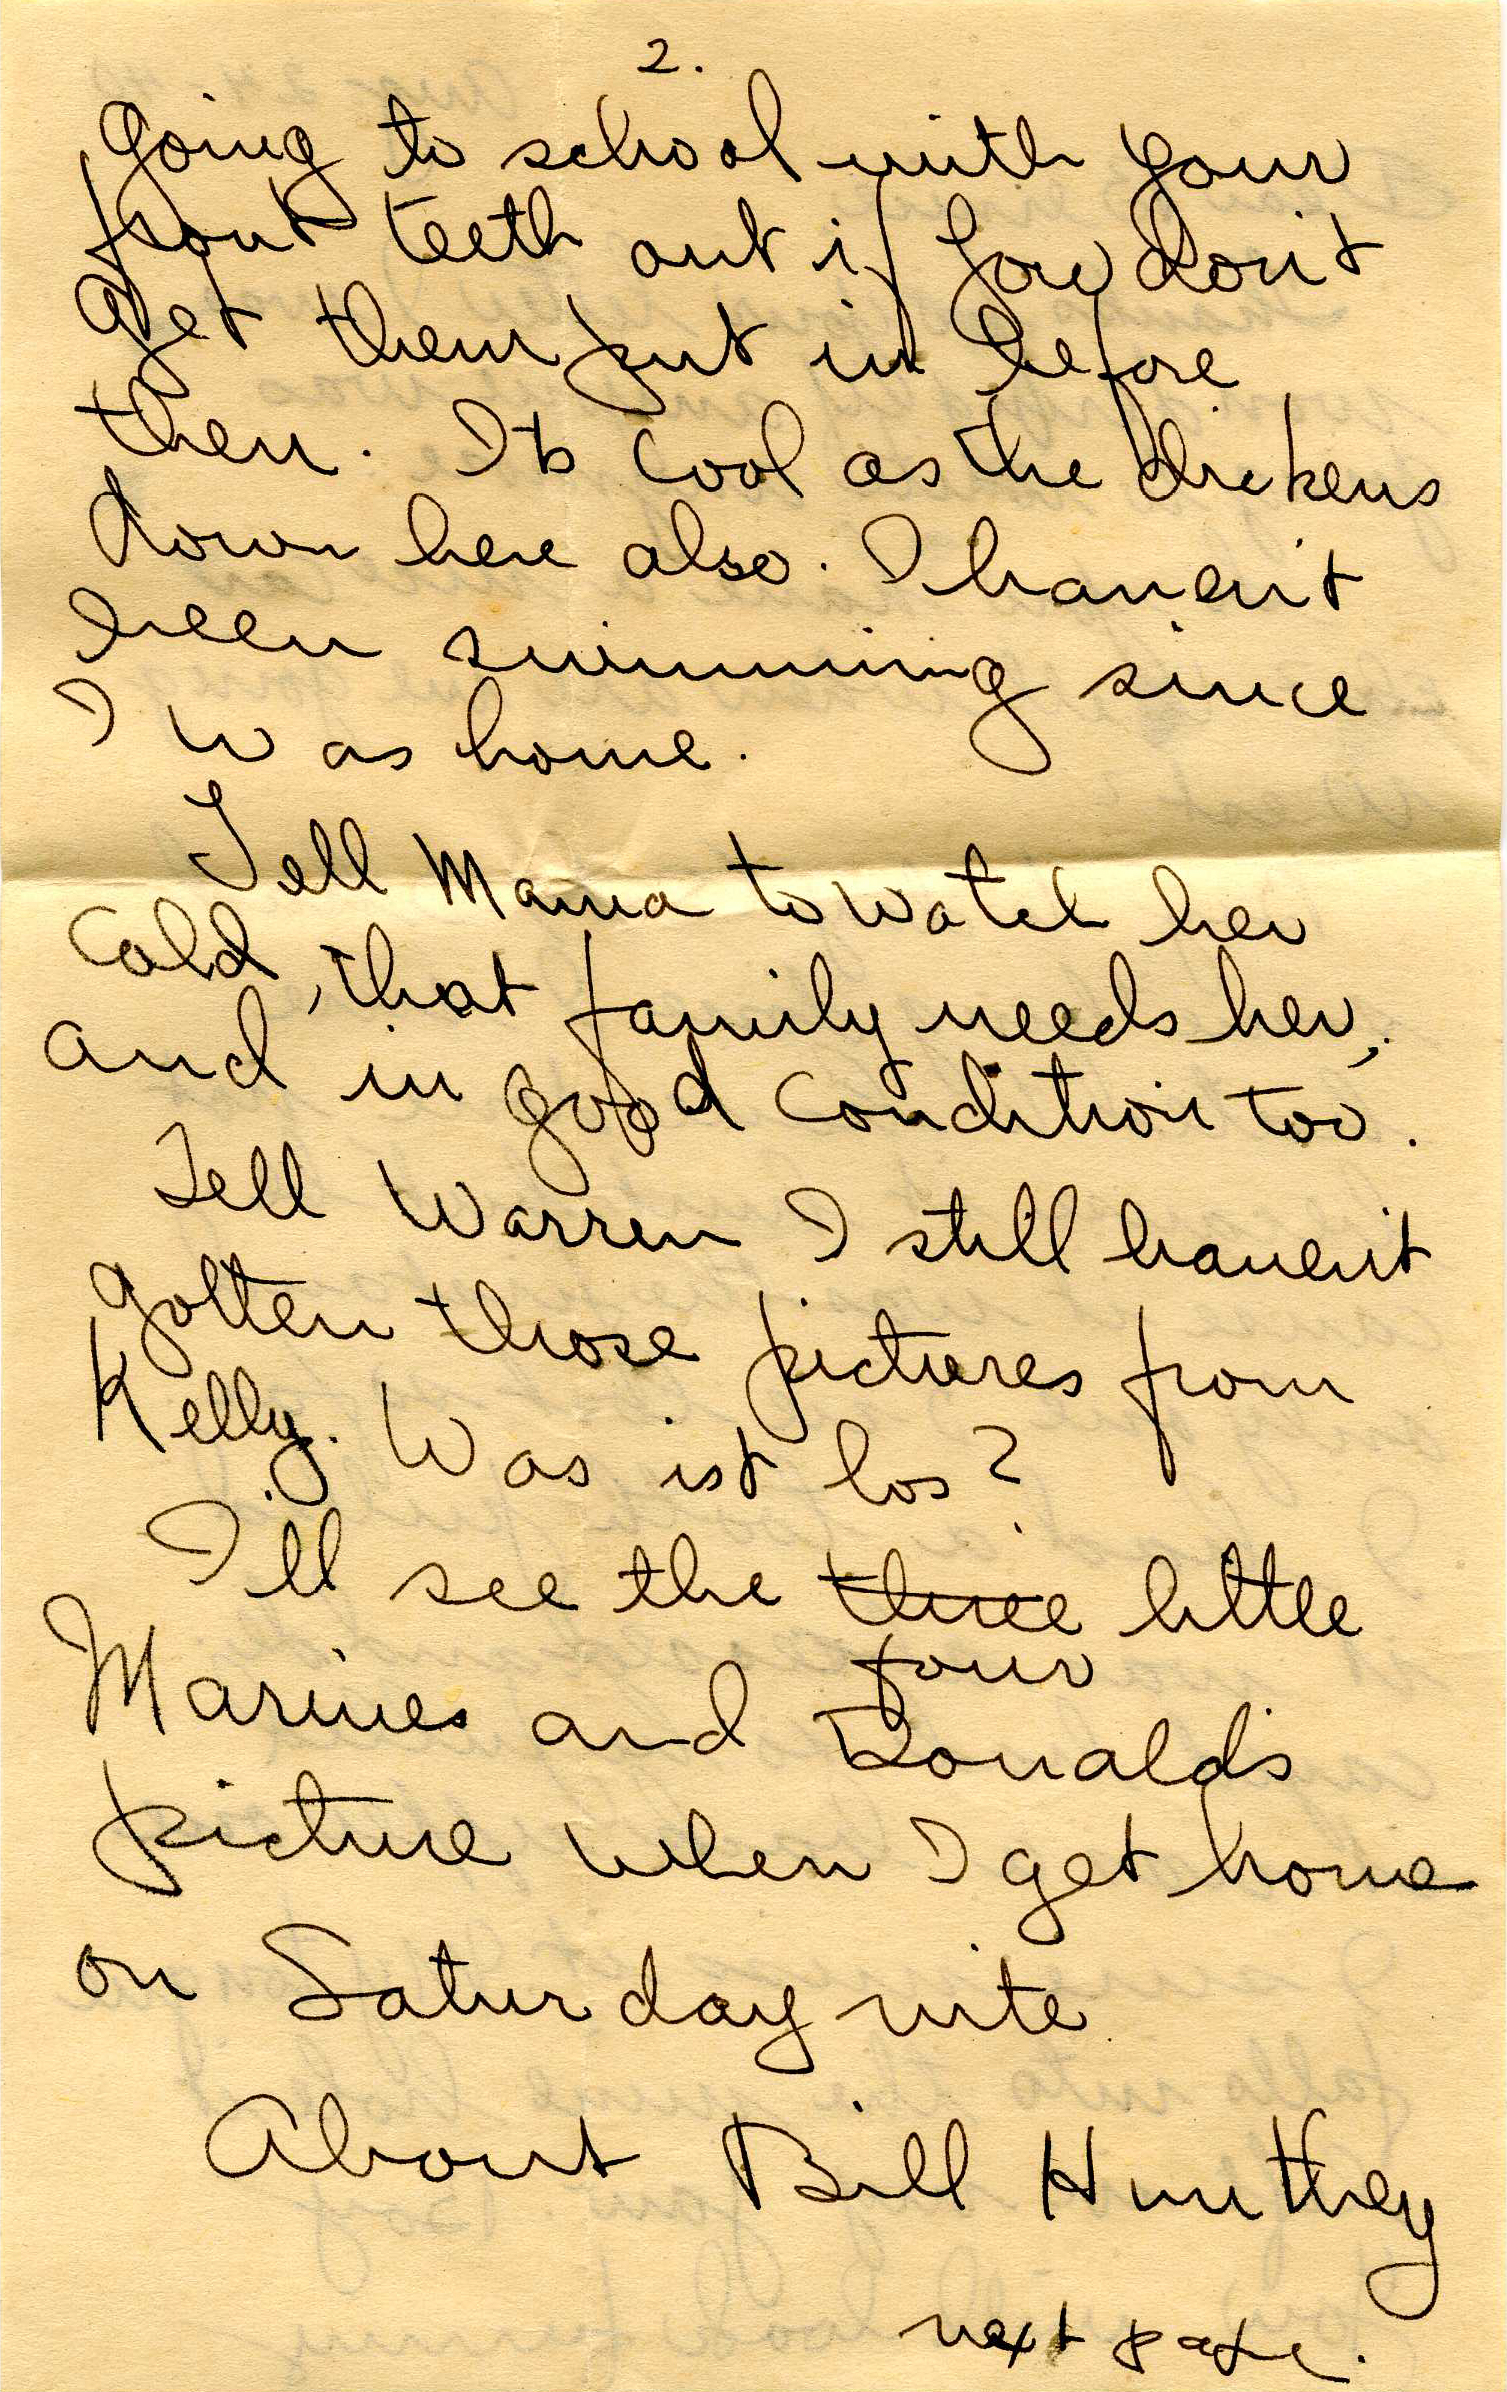 2.
going to school with your
front teeth out if you don't
get them put in before
then. Its cool as the dickens
down here also. I haven't
been swimming since
I was home.
Tell Mama to watch her
cold, that family needs her,
and in good condition too.
Tell Warren I still haven't
gotten those pictures from
Kelly. Was ist los?
I'll see the three little
four
Marines and Ronald's
picture when I get home
on Saturday nite.
About Bill
next page.